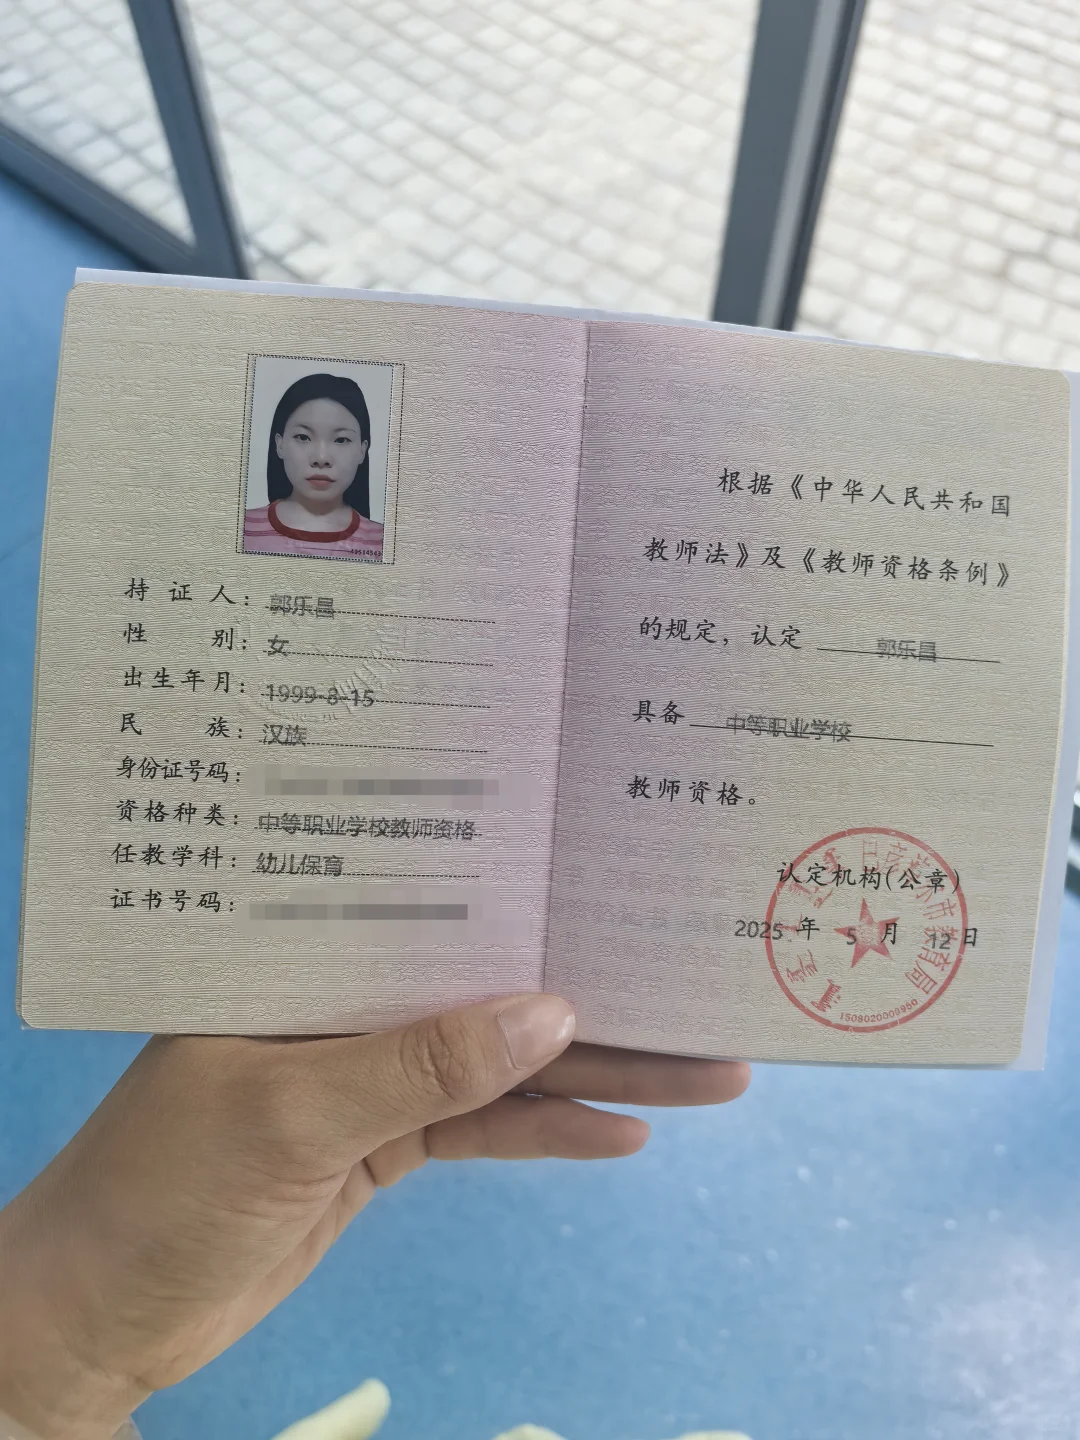 持证人：郭乐昌
性别：女
出生年月：1999-8-15
民族：汉族
身份证号码：
资格种类：中等职业学校教师资格
任教学科：幼儿保育
证书号码：
根据《中华人民共和国
教师法》及《教师资格条例》
的规定，认定 郭乐昌
具备 中等职业学校
教师资格。
认定机构(公章)
2025 年 5 月 12 日
市教育局